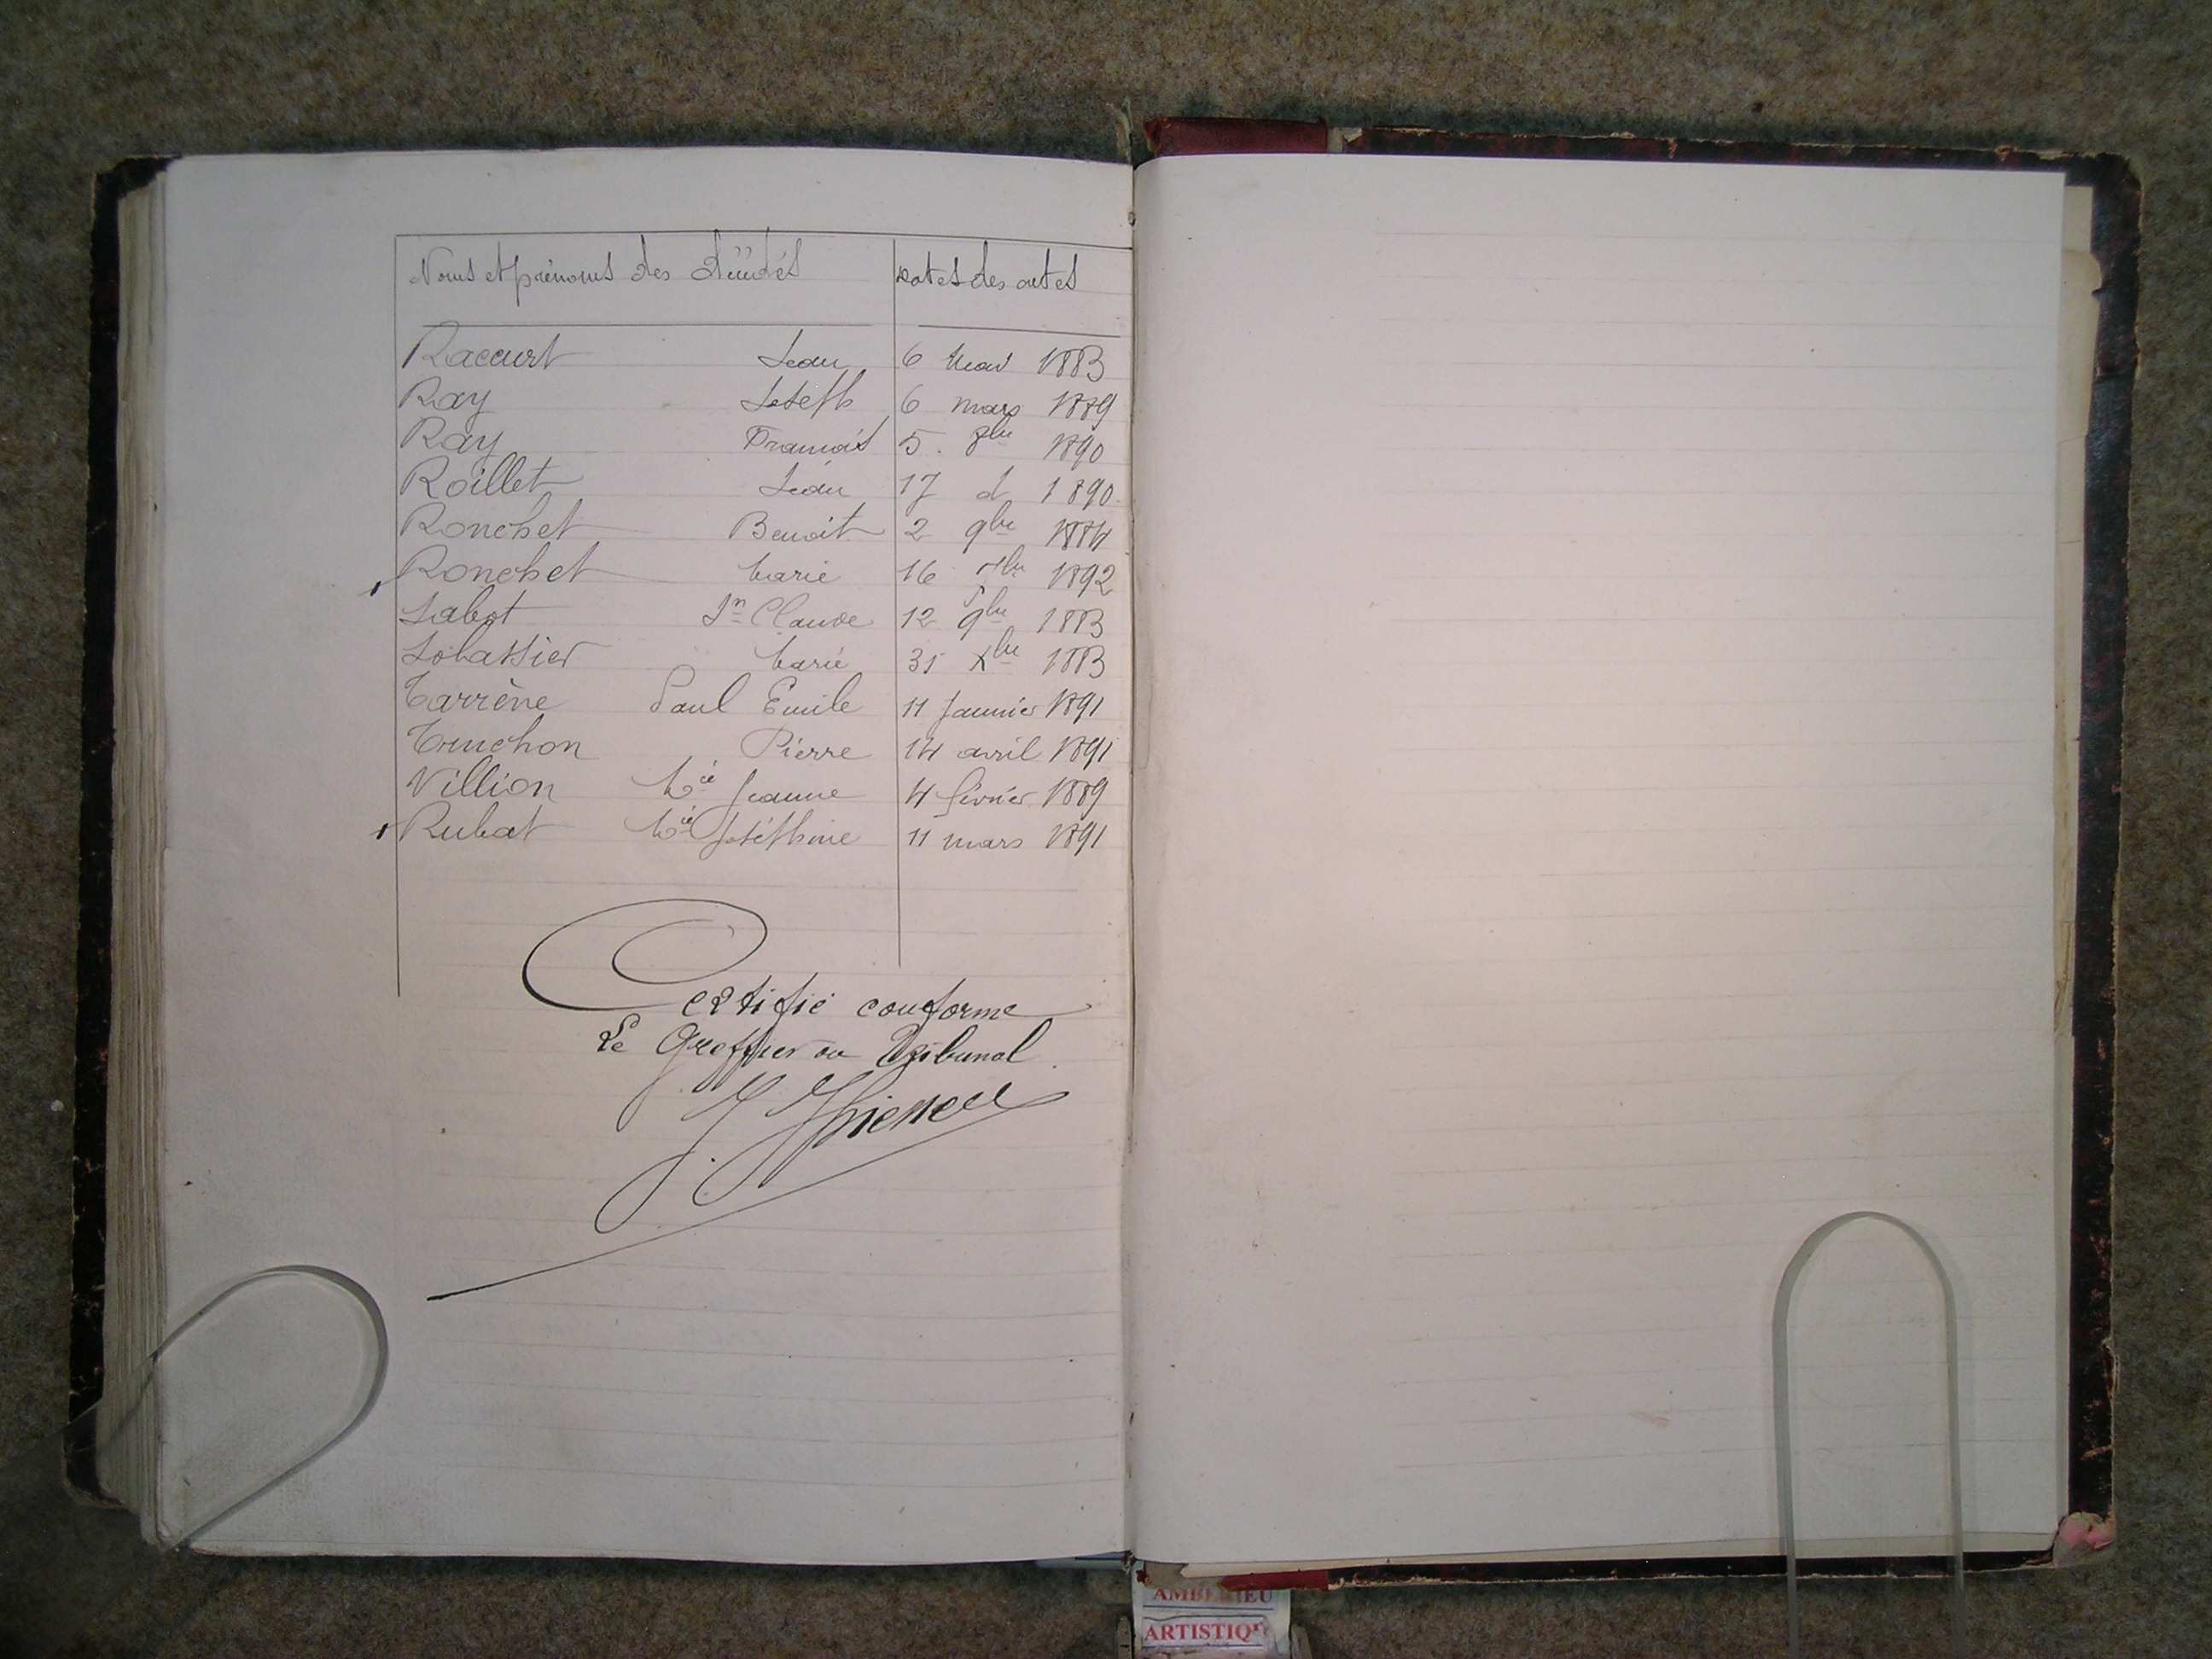 Noms et prénoms des décédés Dates des actes
Racaurt Jean 6 mai 1883
Ray Joseph 6 mars 1889
Ray François 5. 8bre 1890
Roillet Jean 17 d 1890
Ronchet Benoit 2 9bre 1884
Ronchet Marie 16 1892
Sabot Jn Claude 12 9bre 1883
Marie 31 Xbre 1883
Tarrène Paul Emile 11 Janvier 1891
Truchon Pierre 14 avril 1891
Villion Mie Jeanne 4 février 1889
Rubat Mie Joséphine 11 mars 1891
Certifié conforme
Le Greffier du Tribunal
AMBERIEU
ARTISTIQ